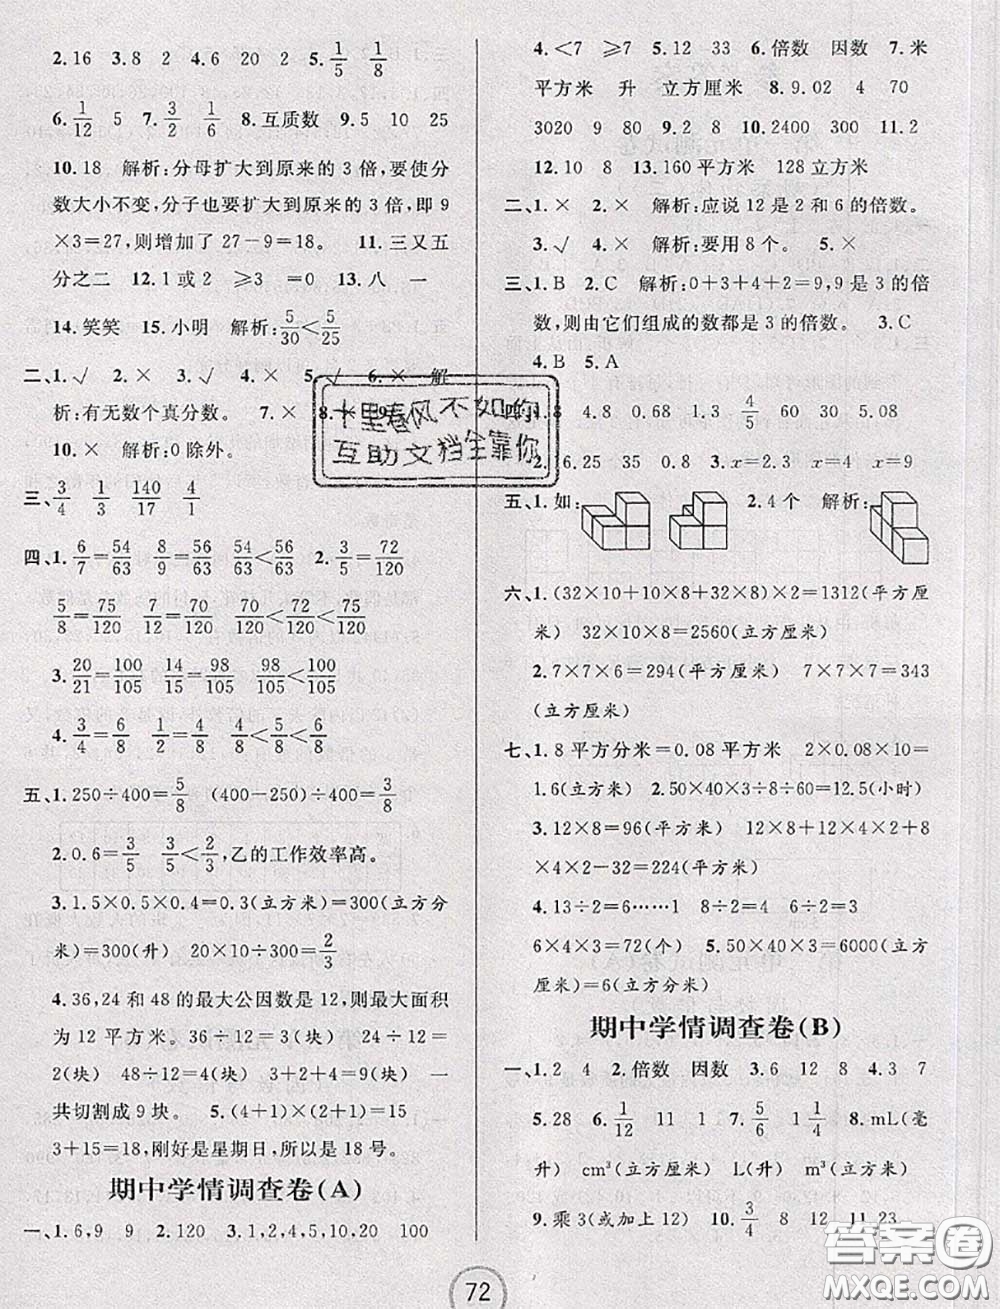 2.16　3.8　2　4.6　20　2　5.1/5　1/8
6.1/12　5　7.3/2　1/6　8.互质数　9.5　10　25
10.18　解析:分母扩大到原来的 3 倍,要使分
数大小不变,分子也要扩大到原来的 3 倍,即 9
×3=27,则增加了 27-9=18。　11.三又五
分之二　12.1 或 2　⩾3　=0　13.八　一
14.笑笑　15.小明　解析:5/30<5/25
二、1.√　2.×　3.√　4.×　5.√　6.×　解
析:有无数个真分数。　7.×　8.×　9.
10.×　解析:0 除外。
三、3/4　1/3　140/17　4/1
四、1.6/7=54/63　8/9=56/63　54/63<56/63　2.3/5=72/120
5/8=75/120　7/12=70/120　70/120<72/120<75/120
3.20/21=100/105　14/15=98/105　98/105<100/105
4.3/4=6/8　1/2=4/8　4/8<5/8<6/8
五、1.250÷400=5/8　(400-250)÷400=3/8
2.0.6=3/5　3/5<2/3,乙的工作效率高。
3.1.5×0.5×0.4=0.3(立方米)=300(立方分
米)=300(升)　20×10÷300=2/3
4.36,24 和 48 的最大公因数是 12,最大面积
为 12 平方米。36÷12=3(块)　24÷12=
2(块)　48÷12=4(块)　2+3+4=9(块)　一
共切割成 9 块。　5.(4+1)×(2+1)=15
3+15=18,刚好是星期日,所以是 18 号。
期中学情调查卷(A)
一、1.6,9　9　2.120　3.1,2,4,5,10,20　100
4.<7　⩾7　5.12　33　6.倍数　因数　7.米
平方米　升　立方厘米　8.9.02　4　70
3020　9　80　9.2　8　10.2400　300　11.2
12.10　8　13.160 平方米　128 立方米
二、1.×　2.×　解析:应说 12 是 2 和 6 的倍数。
3.√　4.×　解析:要用 8 个。　5.×
三、1.B　2.C　解析:0+3+4+2=9,9 是 3 的倍
数,则由它们组成的数都是 3 的倍数。　3.C
4.B　5.A
四、1.8　4.8　0.68　1.3　4/5　60　30　5.08
2.6.25　35　0.8　3.x=2.3　x=4　x=9
五、1.如:　2.4 个　解析:
六、1.(32×10+10×8+32×8)×2=1312(平方厘
米)　32×10×8=2560(立方厘米)
2.7×7×6=294(平方厘米)　7×7×7=343
(立方厘米)
七、1.8 平方分米=0.08 平方米　2×0.08×10=
1.6(立方米)　2.50×40×3÷8÷60=12.5(小时)
3.12×8=96(平方米)　12×8+12×4×2+8
×4×2-32=224(平方米)
4.13÷2=6……1　8÷2=4　6÷2=3
6×4×3=72(个)　5.50×40×3=6000(立方
厘米)=6(立方分米)
期中学情调查卷(B)
一、1.2　4　2.倍数　因数　3.6　12　8　4.3　7
5.28　6.1/12　11　1　7.5/6　1　1/4　8.mL(毫
升)　cm³(立方厘米)　L(升)　m³(立方米)
9.乘 3(或加上 12)　10.3/4　8　12　11.23
十里春风不如你
互助文档全靠你
72
答案圈
MXQE.COM